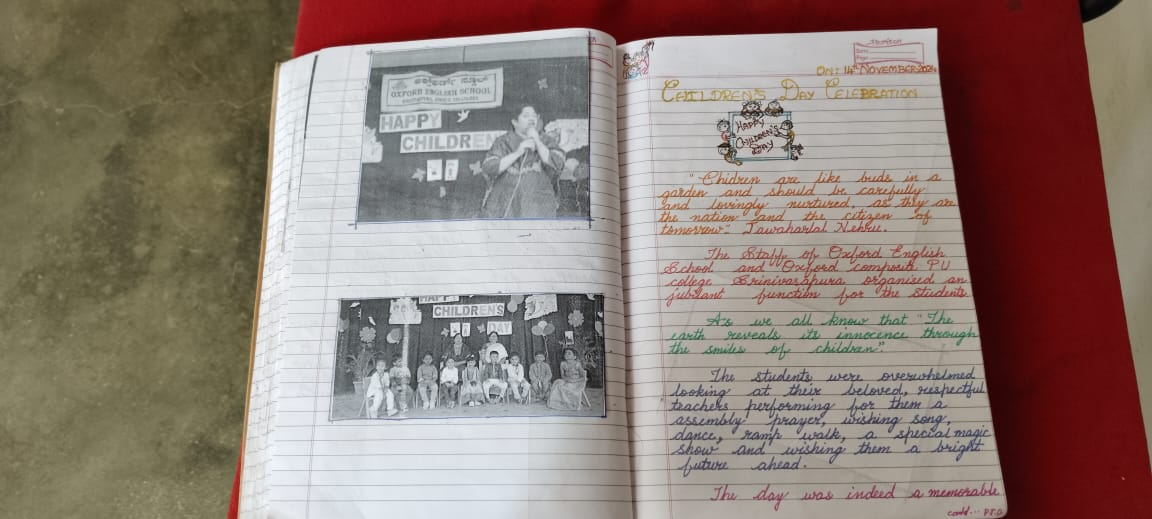 ಆಕ್ಸ್‌ಫರ್ಡ್ ಇಂಗ್ಲಿಷ್ ಸ್ಕೂಲ್
OXFORD ENGLISH SCHOOL
HAPPY
CHILDREN
HAPPY
CHILDREN'S
DAY
Date
Page
ON: 14th NOVEMBER 2024
CHILDREN'S DAY CELEBRATION
HAPPY
CHILDREN'S
DAY
"Chidren are like buds in a
garden and should be carefully
and lovingly nurtured, as they are
the nation and the citizen of
tomorrow". Jawaharlal Nehru.
The Staff of Oxford English
School and Oxford composite PU
college Srinivasapura organised an
jubilant function for the students.
As we all know that "The
earth reveals its innocence through
the smiles of children".
The students were overwhelmed
looking at their beloved, respectful
teachers performing for them a
assembly prayer, wishing song,
dance, ramp walk, a special magic
show and wishing them a bright
future ahead.
The day was indeed a memorable
contd... P.T.O